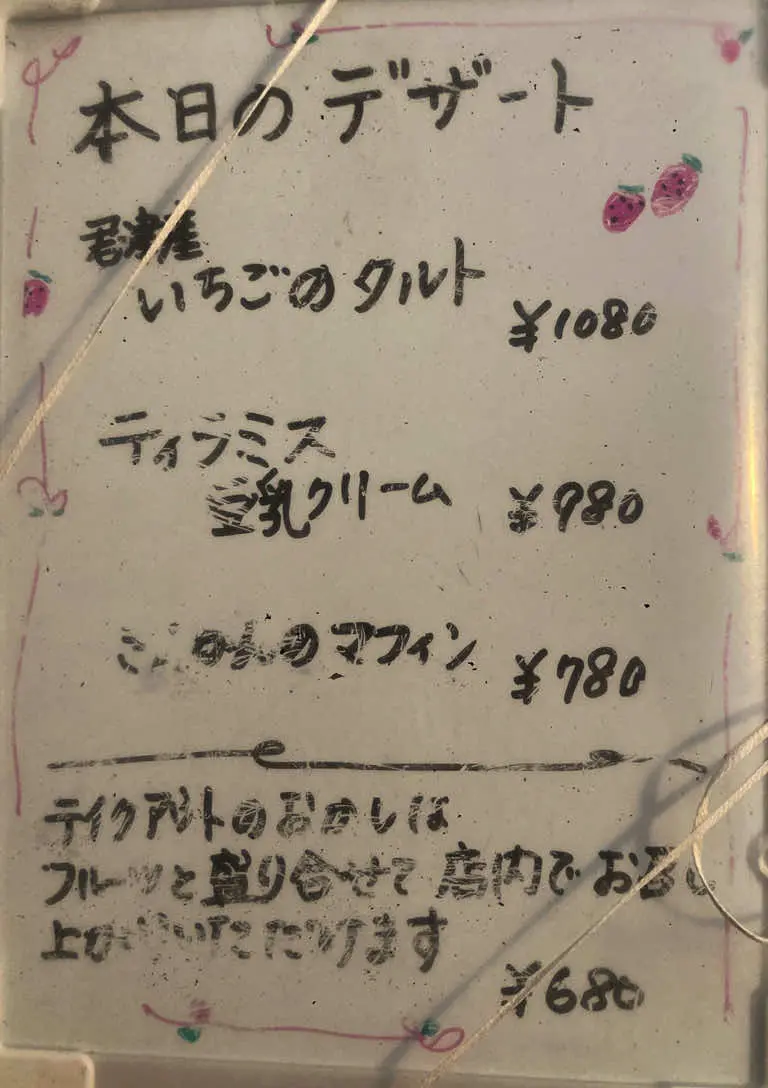 本日のデザート
君津産
いちごのタルト
¥1080
ティラミス
豆乳クリーム ¥980
のマフィン ¥780
テイクアウトのおかしは
フルーツと盛り合せて 店内でお召し
上がりいただけます
¥680